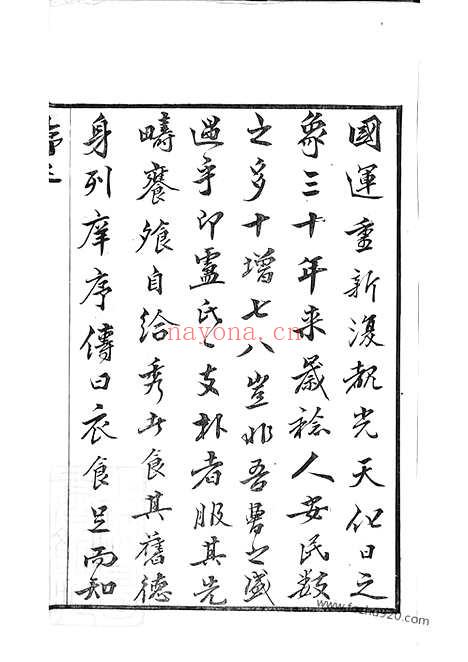 國運重新復覩光天化日之
象三十年来歲稔人安民數
之多十增七八豈非吾曹之盛
遇乎即盧氏之支朴者服其先
疇饔飱自給秀者食其舊德
身列庠序傳曰衣食足而知
nayona.cn